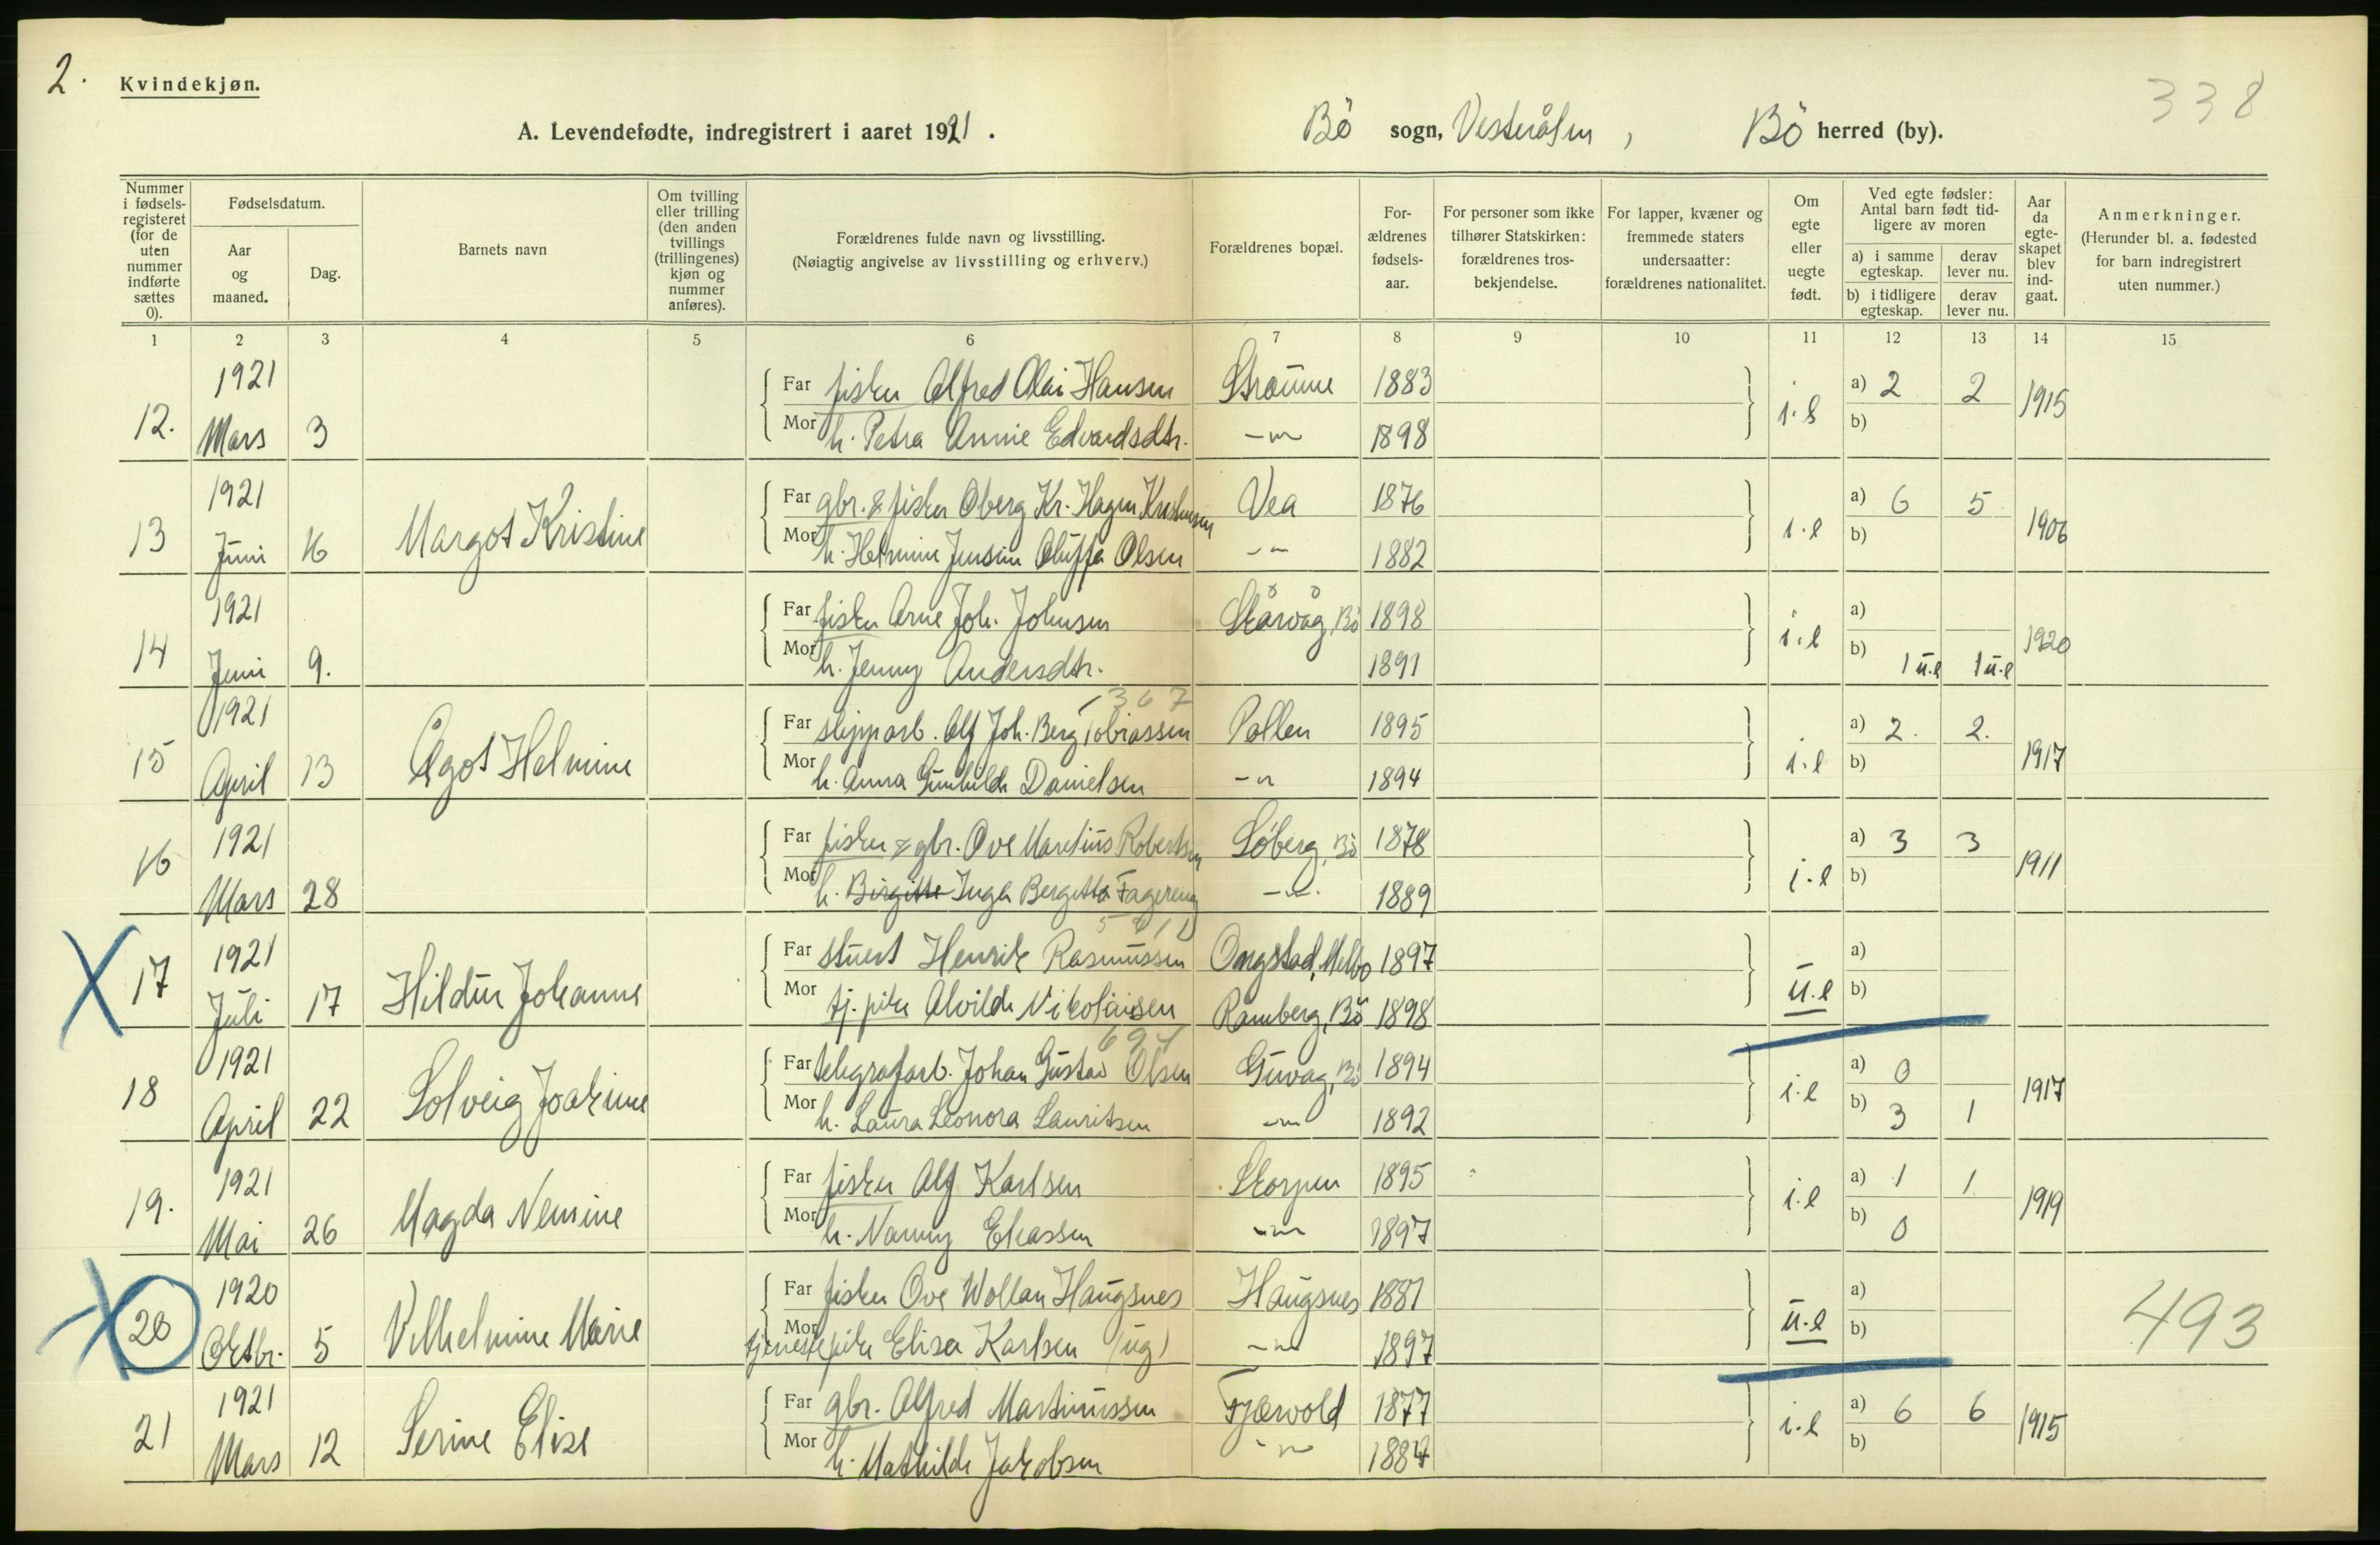 2.
Kvindekjøn.
338
A. Levendefødte, indregistrert i aaret 1921.
Bö sogn, Vesterålen, Bö herred (by).
Nummer i fødselsregisteret (for de uten nummer indførte sættes 0).
Fødselsdatum.
Aar og maaned.
Dag.
Barnets navn
Om tvilling eller trilling (den anden tvillings (trillingenes) kjøn og nummer anføres).
Forældrenes fulde navn og livsstilling.
(Nøiagtig angivelse av livsstilling og erhverv.)
Forældrenes bopæl.
Forældrenes fødselsaar.
For personer som ikke tilhører Statskirken: forældrenes trosbekjendelse.
For lapper, kvæner og fremmede staters undersaatter: forældrenes nationalitet.
Om egte eller uegte født.
Ved egte fødsler: Antal barn født tidligere av moren
a) i samme egteskap.
derav lever nu.
b) i tidligere egteskap.
derav lever nu.
Aar da egteskapet blev indgaat.
Anmerkninger.
(Herunder bl. a. fødested for barn indregistrert uten nummer.)
1 2 3 4 5 6 7 8 9 10 11 12 13 14 15
1921
Far fisker Alfred Olai Hansen Straume 1883 a) 2 2
12. Mars 3 i.e 1915
Mor h. Petra Annie Edvardsdtr. -"- 1898 b)
1921
Far gbr. & fisker Oberg Kr. Hagen Kristensen Vea 1876 a) 6 5
13 Juni 16 Margot Kristine i.e 1906
Mor h. Helmine Jensine Oluffa Olsen -"- 1882 b)
1921
Far fisker Arne Joh. Johnsen Skårvåg, Bö 1898 a)
14 Juni 9. i.e 1920
Mor h. Jenny Andersdtr. 1891 b) 1 u.e 1 u.e
1367
1921
Far slipparb. Alf Joh. Berg Tobiassen Pollen 1895 a) 2. 2.
15 April 13 Ågot Helmine i.e 1917
Mor h. Anna Gunhilde Danielsen -"- 1894 b)
1921
Far fisker & gbr. Ove Maretius Robertsen Söberg, Bö 1878 a) 3 3
16 Mars 28 i.e 1911
Mor h. Birgitte Inga Bergitta Fagereng -"- 1889 b)
1921
Far stuert Henrik Rasmussen Ongstad, Melbo 1897 a)
17 Juli 17 Hildur Johanne u.e
Mor tj. pike Alvilde Nikolaisen Ramberg, Bö 1898 b)
1921
Far telegrafarb. Johan Gustav Olsen Guvåg, Bö 1894 a) 0
18 April 22 Solveig Joakime i.e 1917
Mor h. Laura Leonora Lauritsen -"- 1892 b) 3 1
1921
Far fisker Alf Karlsen Skorpen 1895 a) 1 1
19. Mai 26 Magda Nemine i.e 1919
Mor h. Nanny Eliassen -"- 1897 b) 0
1920
Far fisker Ove Wollan Haugsnes Haugsnes 1881 a)
20 Oktbr. 5 Vilhelmine Marie u.e 493
Mor tjenestepike Elise Karlsen (ug) -"- 1897 b)
1921
Far gbr. Alfred Martinussen Fjærvold 1877 a) 6 6
21 Mars 12 Serine Elise i.e 1915
Mor h. Mathilde Jakobsen -"- 1884 b)